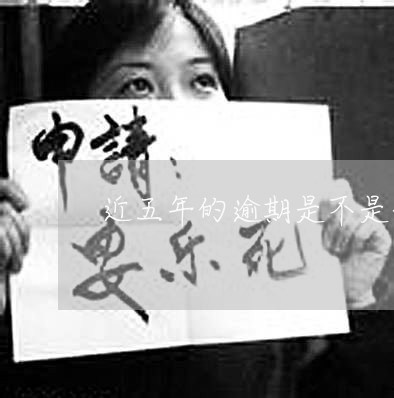 申請：
近五年的逾期是不是
安乐死